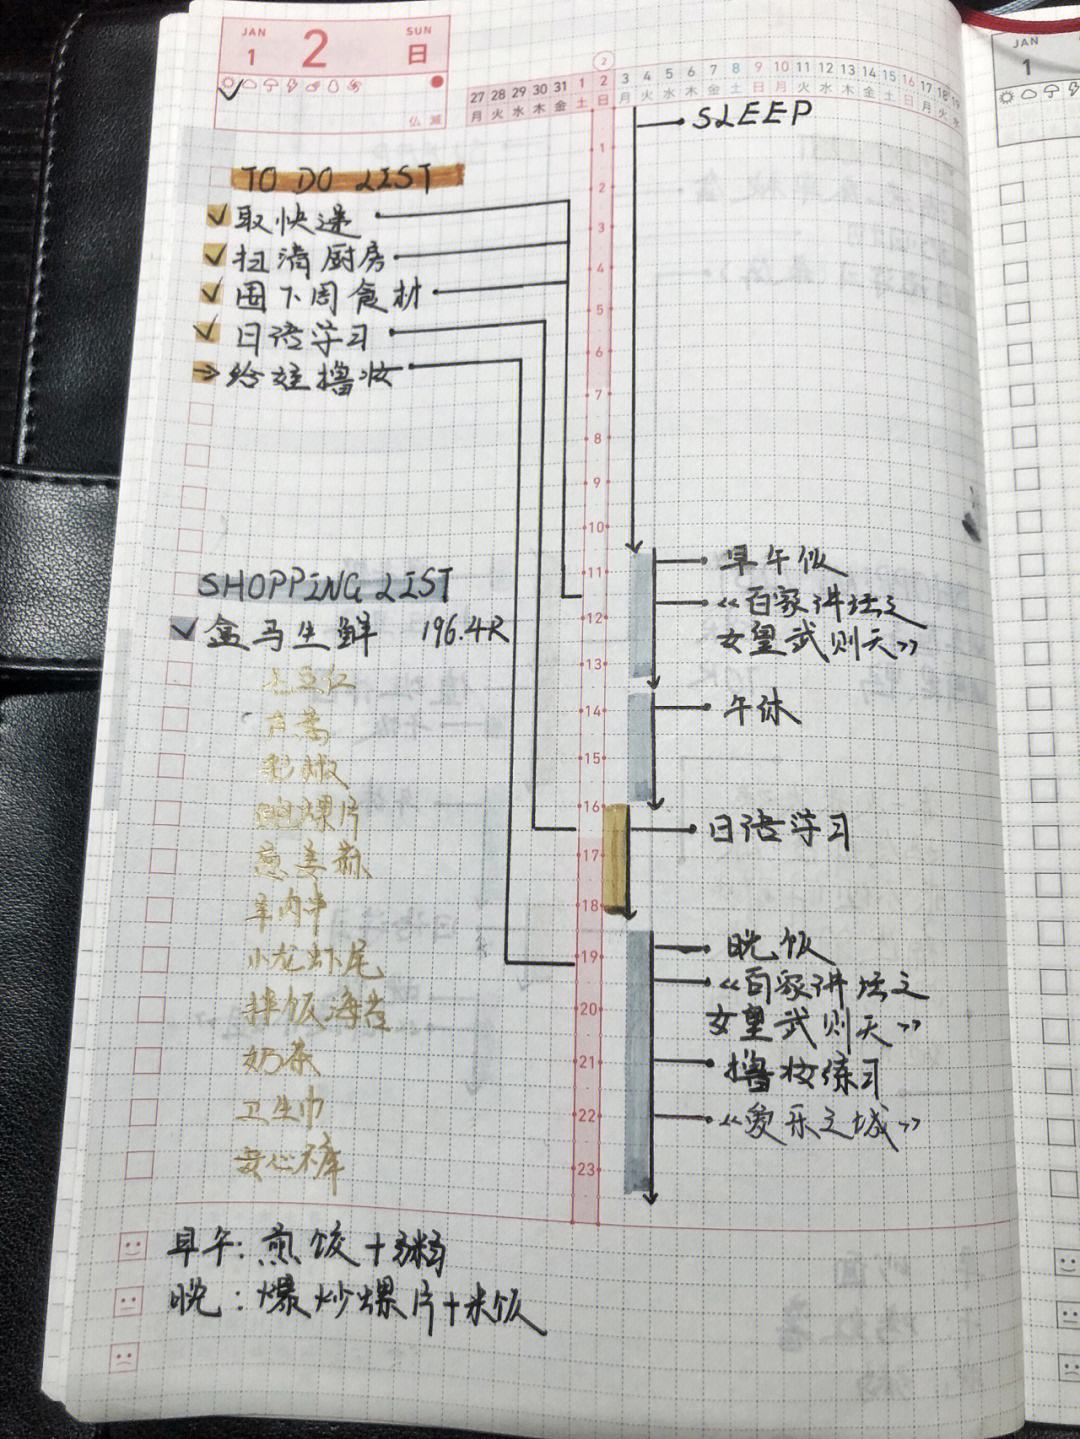 JAN 1 2 SUN 日
仏滅
27 28 29 30 31 1 2 3 4 5 6 7 8 9 10 11 12 13 14 15 16 17 18 19
月 火 水 木 金 土 日 月 火 水 木 金 土 日 月 火 水 木 金 土 日 月 火 水
2
JAN
1
SLEEP
TO DO LIST
取快递
扫清厨房
囤下周食材
日语学习
给娃撸妆
SHOPPING LIST
盒马生鲜 196.4R
彩椒
鲍螺片
葱姜蒜
小龙虾尾
拌饭海苔
奶茶
卫生巾
安心裤
1
2
3
4
5
6
7
8
9
10
11
12
13
14
15
16
17
18
19
20
21
22
23
早午饭
《百家讲坛之
女皇武则天》
午休
日语学习
晚饭
《百家讲坛之
女皇武则天》
撸妆练习
《爱乐之城》
早午: 煎饺+粥
晚: 爆炒螺片+米饭